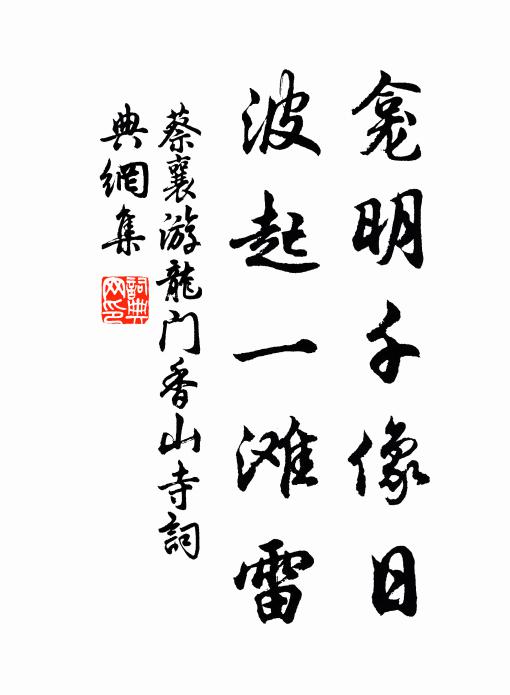 龛明千像日
波起一滩雷
蔡襄游龍门香山寺詞
典網集
詞典
网印